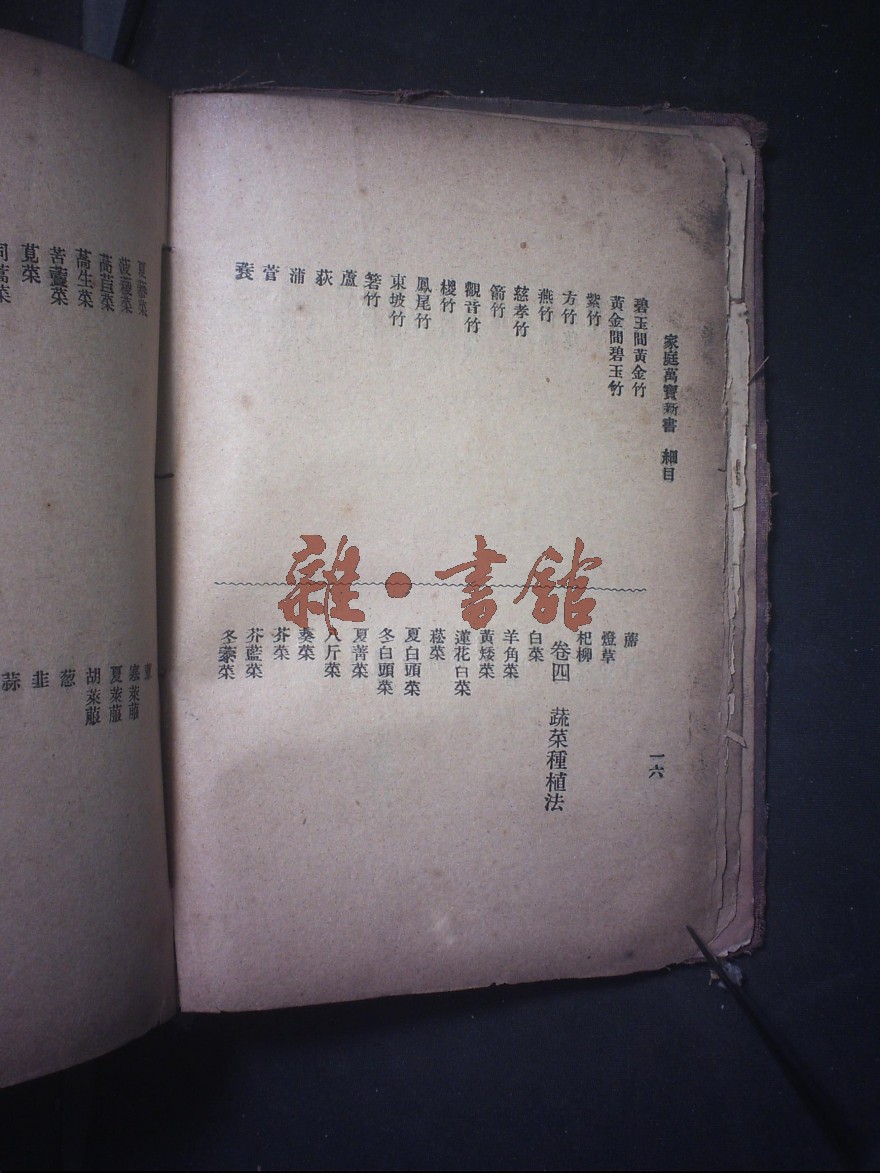 家庭萬寶新書 細目
一六
碧玉間黃金竹
黃金間碧玉竹
紫竹
方竹
燕竹
慈孝竹
箭竹
觀音竹
椶竹
鳳尾竹
東坡竹
箬竹
蘆
荻
蒲
菅
燈草
杞柳
卷四 蔬菜種植法
白菜
羊角菜
黃矮菜
蓮花白菜
菘菜
夏白頭菜
冬白頭菜
夏菁菜
八斤菜
葵菜
芥菜
芥藍菜
冬菜
菠菜
萵苣菜
萵生菜
苦菜
莧菜
同蒿菜
寒萊菔
夏萊菔
胡萊菔
葱
韭
蒜
雜·書館